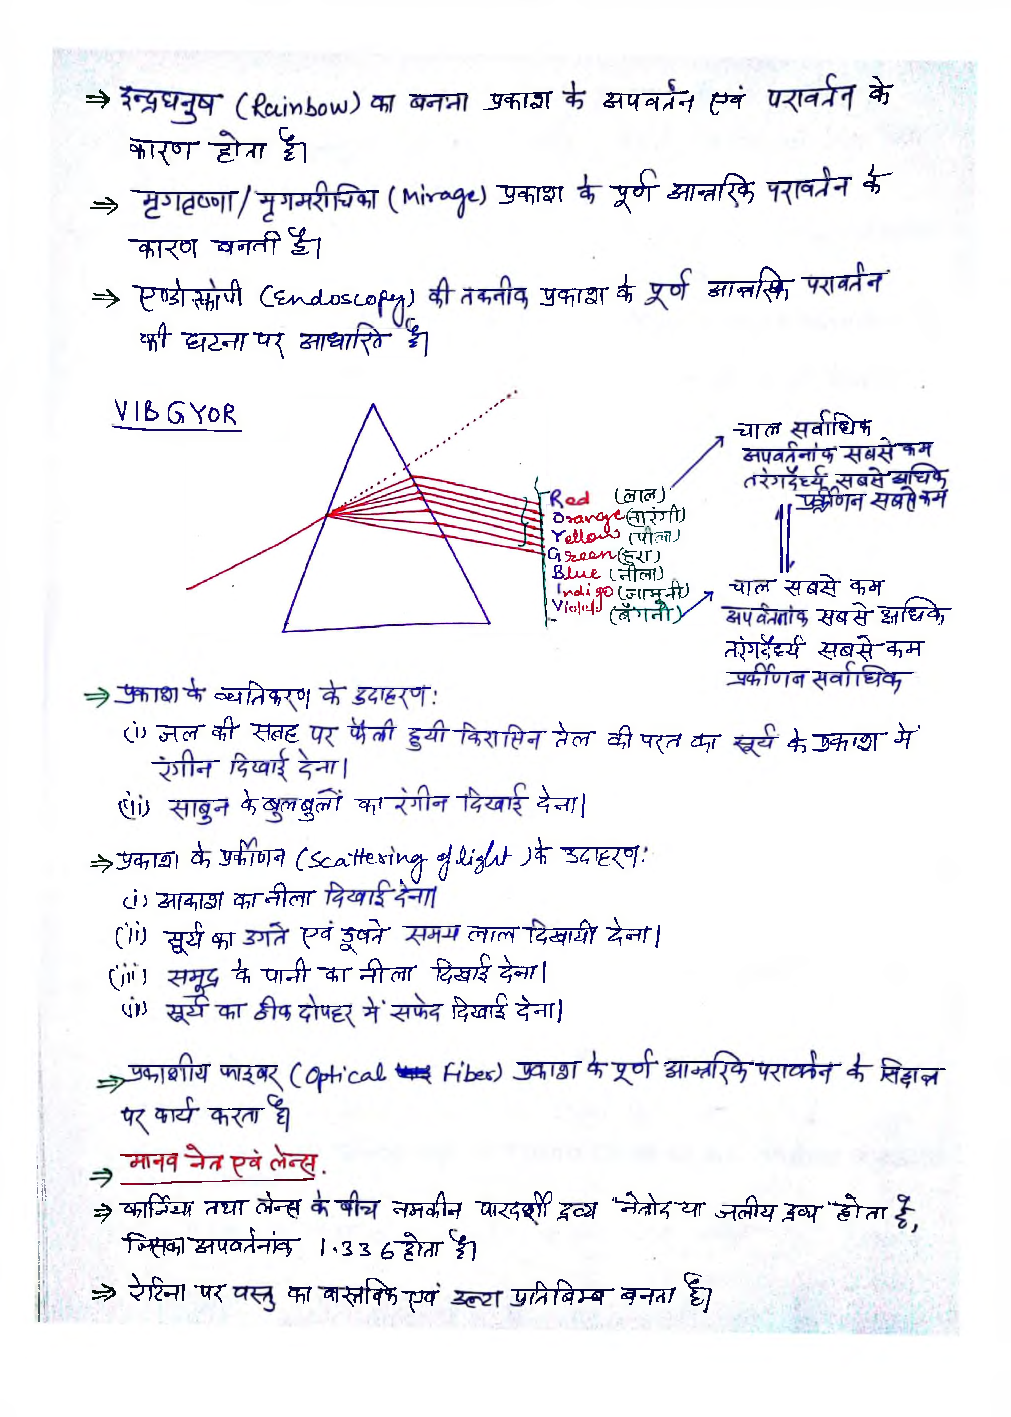 ⇒ इन्द्रधनुष (Rainbow) का बनना प्रकाश के अपवर्तन एवं परावर्तन के
कारण होता है।
⇒ मृगतृष्णा/मृगमरीचिका (Mirage) प्रकाश के पूर्ण आन्तरिक परावर्तन के
कारण बनती है।
⇒ एण्डोस्कोपी (Endoscopy) की तकनीक प्रकाश के पूर्ण आन्तरिक परावर्तन
की घटना पर आधारित है।
VIBGYOR
चाल सर्वाधिक
अपवर्तनांक सबसे कम
तरंगदैर्ध्य सबसे अधिक
प्रर्कीणन सबसे कम
Red (लाल)
Orange (नारंगी)
Yellow (पीला)
Green (हरा)
Blue (नीला)
Indigo (जामुनी)
Violet (बैंगनी)
चाल सबसे कम
अपवर्तनांक सबसे अधिक
तरंगदैर्ध्य सबसे कम
प्रर्कीणन सर्वाधिक
⇒ प्रकाश के व्यतिकरण के उदाहरण:
(i) जल की सतह पर फैली हुयी किरासिन तेल की परत का सूर्य के प्रकाश में
रंगीन दिखाई देना।
(ii) साबुन के बुलबुलों का रंगीन दिखाई देना।
⇒ प्रकाश के प्रर्कीणन (Scattering of light) के उदाहरण:
(i) आकाश का नीला दिखाई देना।
(ii) सूर्य का उगते एवं डूबते समय लाल दिखायी देना।
(iii) समुद्र के पानी का नीला दिखाई देना।
(iv) सूर्य का ठीक दोपहर में सफेद दिखाई देना।
⇒ प्रकाशीय फाइबर (Optical Fiber) प्रकाश के पूर्ण आन्तरिक परावर्तन के सिद्धान्त
पर कार्य करता है।
⇒ मानव नेत्र एवं लेन्स.
⇒ कार्निया तथा लेन्स के बीच नमकीन पारदर्शी द्रव्य "नेत्रोद या जलीय द्रव्य" होता है,
जिसका अपवर्तनांक 1.336 होता है।
⇒ रेटिना पर वस्तु का वास्तविक एवं उल्टा प्रतिबिम्ब बनता है।